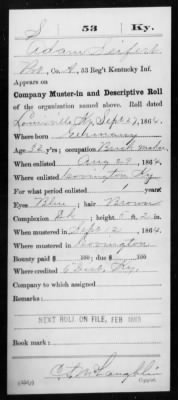 S 53 Ky.
Adam Seifert
Pvt., Co. A, 53 Reg't Kentucky Inf.
Appears on
Company Muster-in and Descriptive Roll
of the organization named above. Roll dated
Louisville Ky, Sept 27, 1864.
Where born Germany
Age 36 y'rs; occupation Brick maker
When enlisted Aug 29, 1864.
Where enlisted Covington Ky
For what period enlisted years.
Eyes Blue; hair Brown
Complexion Dk; height 5 ft. 2 in.
When mustered in Sept 12, 1864.
Where mustered in Covington
Bounty paid $ 100; due $ 100
Where credited 6 Dist, Ky.
Company to which assigned
Remarks:
NEXT ROLL ON FILE, FEB 1865
Book mark:
McLaughlin
Copyist.